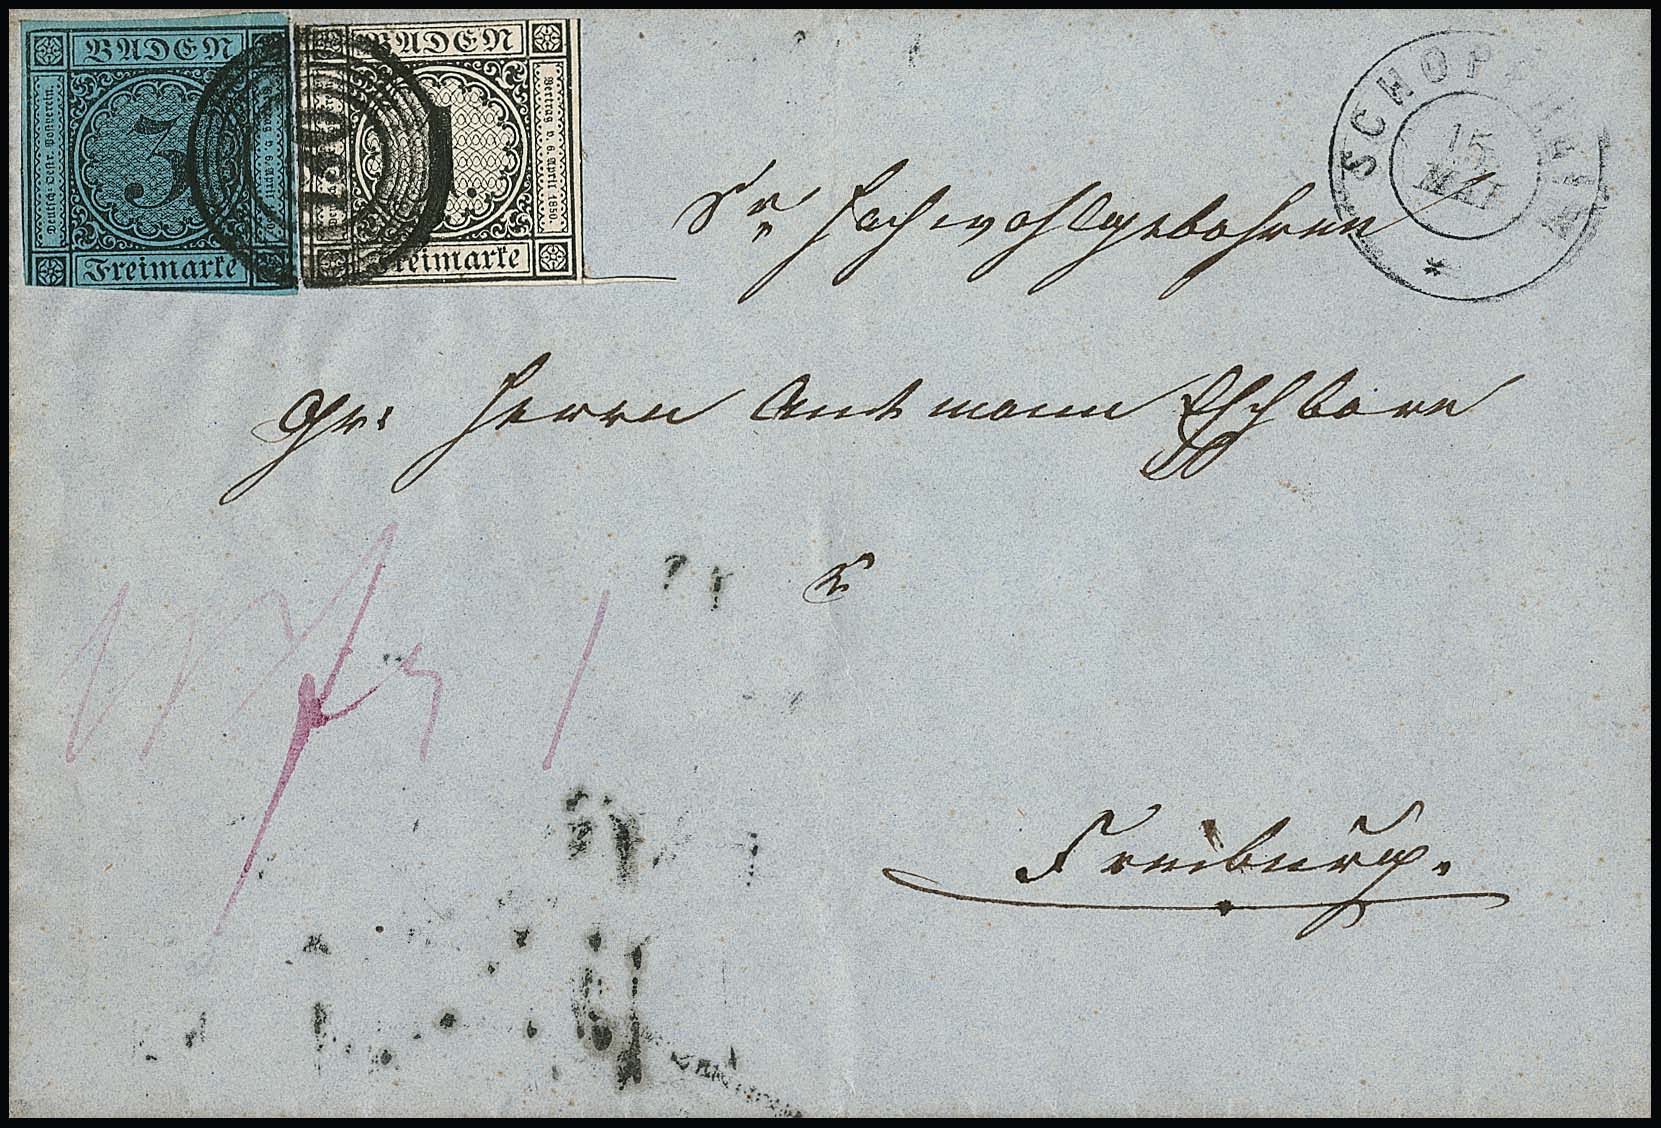 BADEN
Deutsch-Oestr. Postverein.
3
Freimarke
BADEN
Vertrag v. 6. April 1850.
1.
Freimarke
130
SCHOPFHEIM
15
MAI
*
Sr Hochwohlgebohren
Gr: Herrn Amtmann
Freiburg.